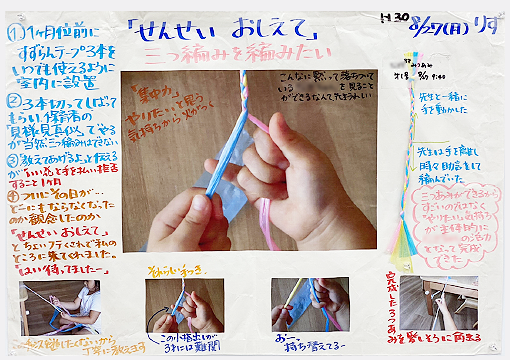 「せんせい おしえて」
三つ編みを編みたい
H30
8/27(月) りす
①1ヶ月位前に
すずらんテープ3本を
いつでも使えるように
室内に設置
②3本切ってしばって
もらい、保育者の
見様見真似でやる
が当然三つ編みはできない
③「教えてあげるよ」と伝える
が「いい」と手を払い拒否
すること1ヶ月
④ついにその日が…
どーにもならなくなった
のか観念したのか
「せんせい おしえて」
とちょいフテくされて私の
ところに来てくれました。
「はい待ってました〜」
「集中力」
やりたいと思う
気持ちから火がつく
こんなに黙って落ちついて
いる を見ること
ができるなんてうれしい
みつあみ
先生と一緒に
手を動かした
先生は手を離し
時々助言をして
編んでいた
三つあみができるから
すごいのではなく
"やりたい"気持ち
が主体的に
の活力
となって完成
できた
それらしい手つき
この小指出しが
3才には難関
あー、
持ち替えてるー
丁寧に教えます
完成した三つあ
みを髪しそうに